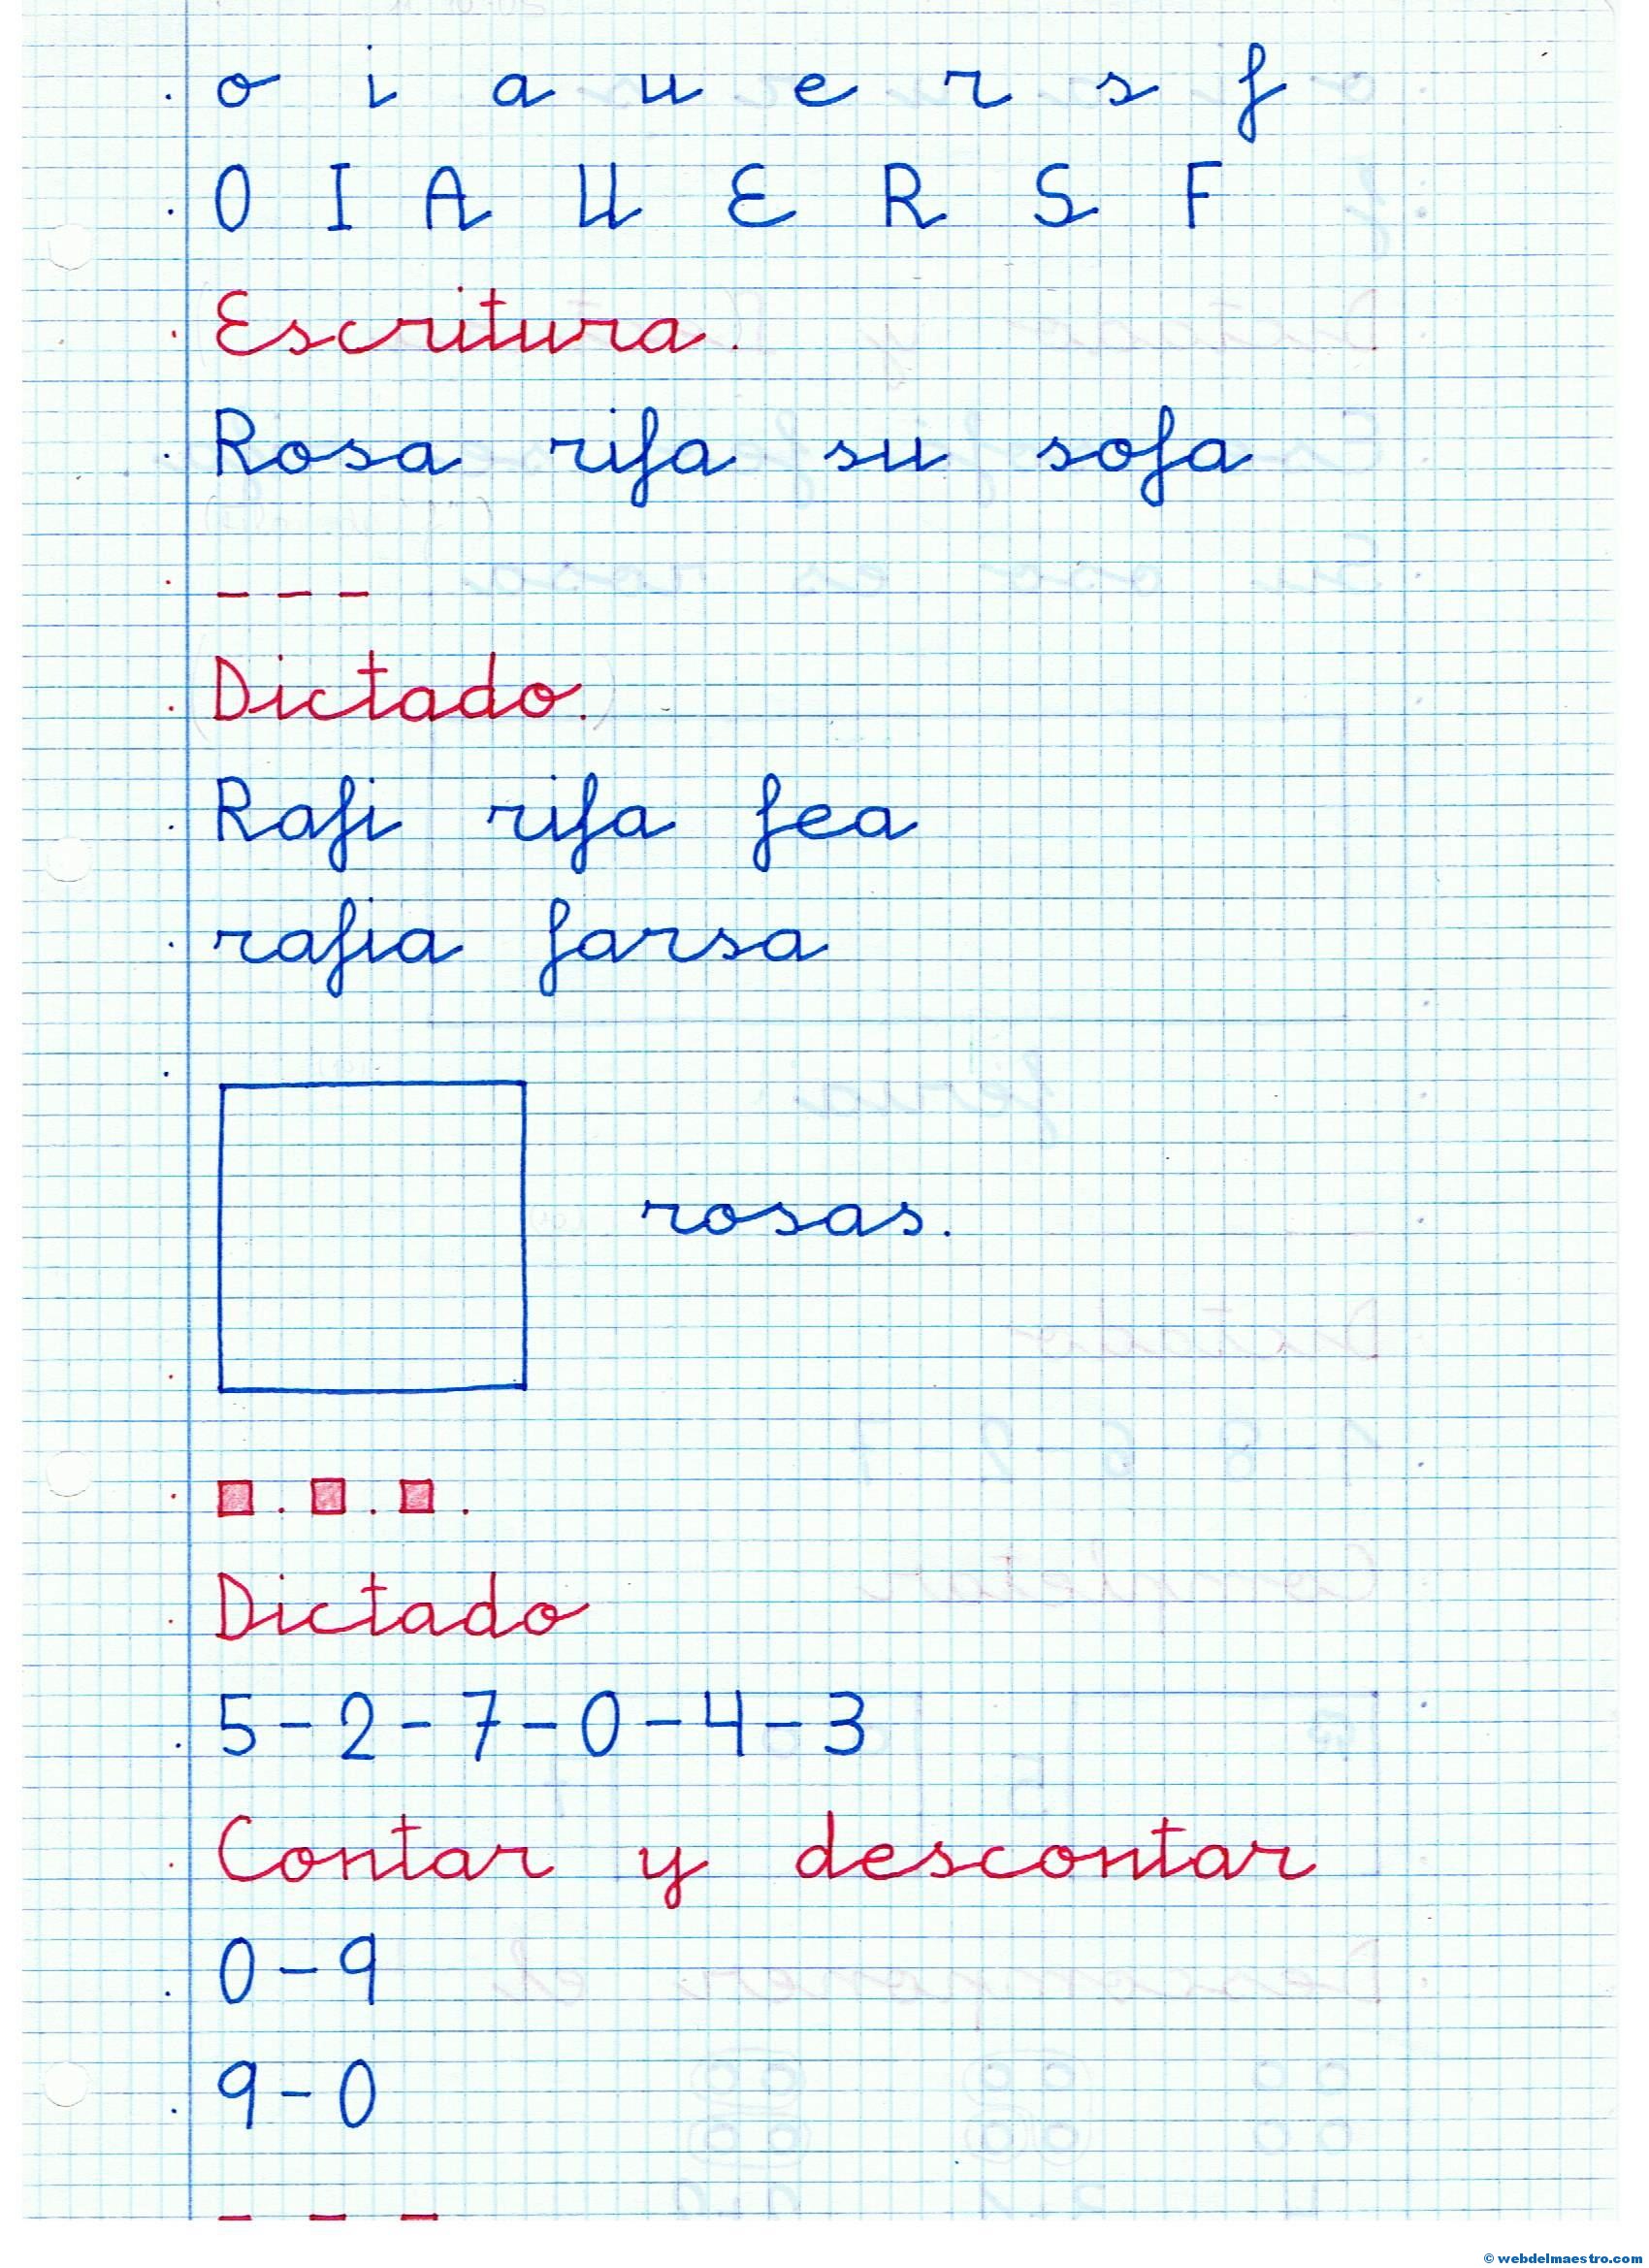 o i a u e r s f
O I A U E R S F
Escritura.
Rosa rifa su sofa
- - -
Dictado.
Rafi rifa fea
rafia farsa
rosas.
Dictado
5-2-7-0-4-3
Contar y descontar
0-9
9-0
- - -
© webdelmaestro.com